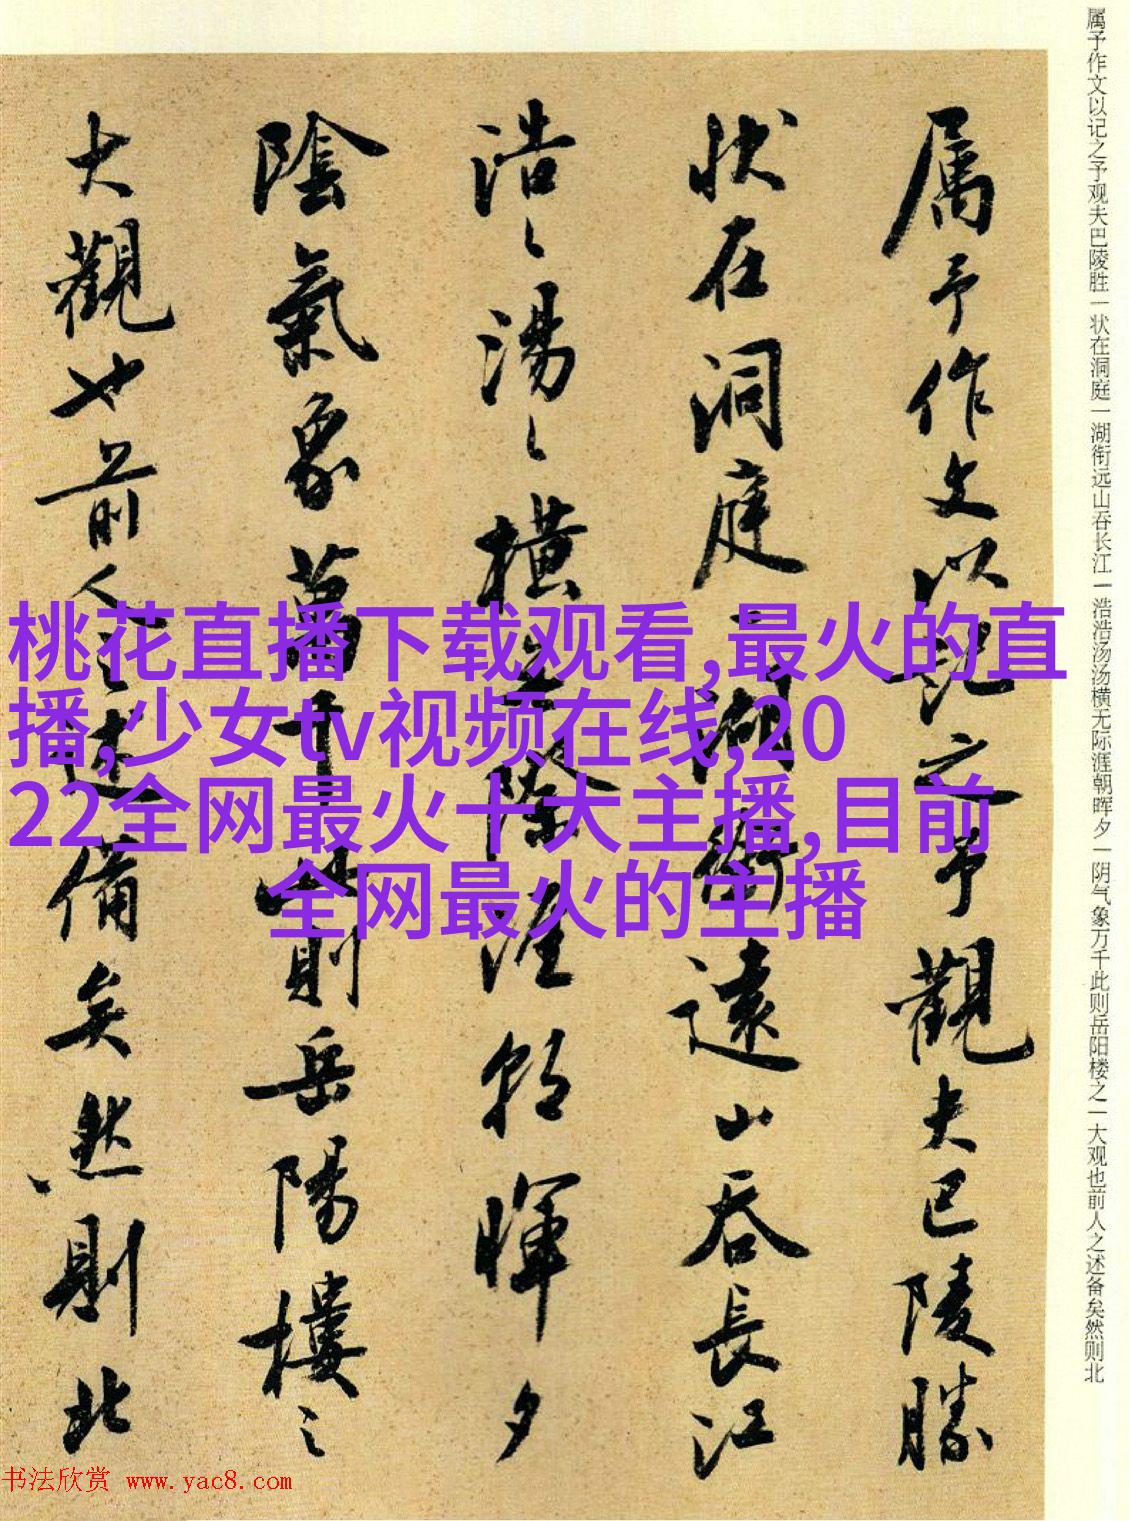 属予作文以记之予观夫巴陵胜一状在洞庭一湖衔远山吞长江一浩浩汤汤横无际涯朝晖夕一阴气象万千此则岳阳楼之一大观也前人之述备矣然则北
属予作文以記之予觀夫巴陵勝
状在洞庭一湖銜遠山吞長江
浩〻湯〻橫無際涯朝暉夕
陰氣象萬千此則岳陽樓之
大觀也前人之述備矣然則北
桃花直播下载观看,最火的直
播,少女tv视频在线,20
22全网最火十大主播,目前
全网最火的主播
书法欣赏 www.yac8.com